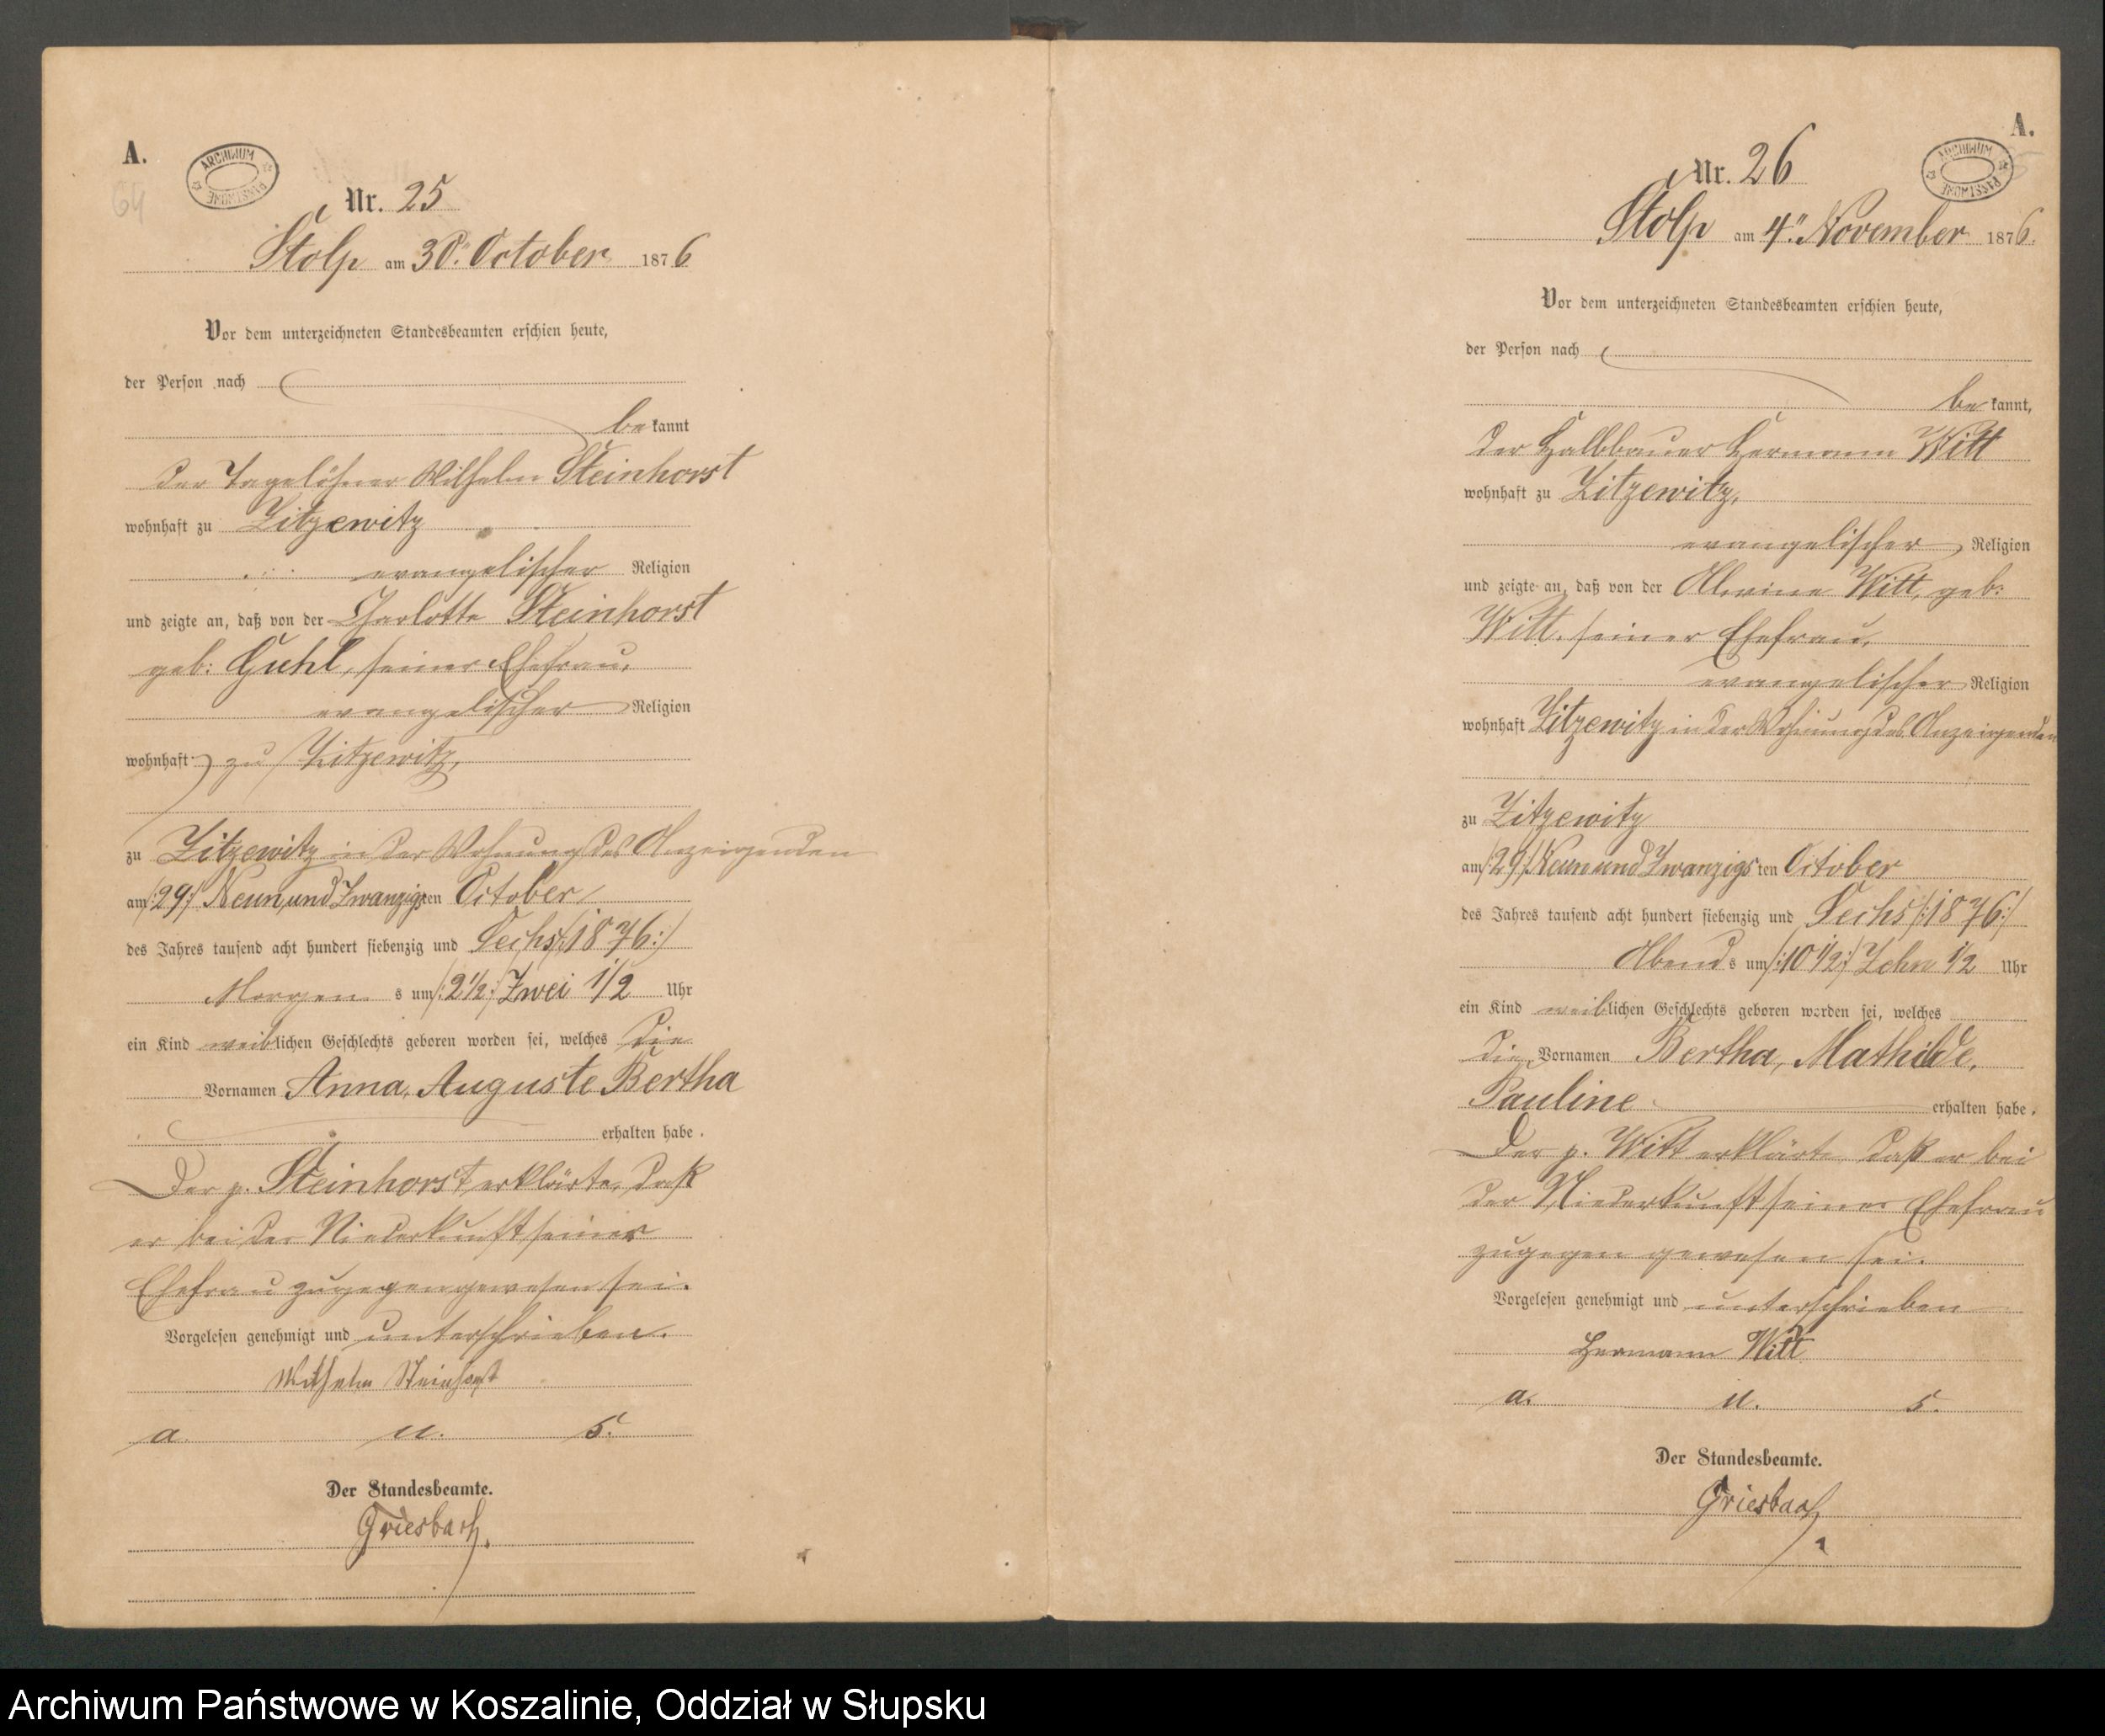 A.
64
ARCHIWUM PAŃSTWOWE
Nr. 25
Stolp am 30ten October 1876
Vor dem unterzeichneten Standesbeamten erschien heute,
der Person nach
bekannt
der Tagelöhner Wilhelm Steinhorst
wohnhaft zu Zitzewitz
evangelischer Religion
und zeigte an, daß von der Charlotte Steinhorst
geb: Guhl, seiner Ehefrau,
evangelischer Religion
wohnhaft zu Zitzewitz,
zu Zitzewitz in der Wohnung des Anzeigenden
am /:29:/ Neun und Zwanzigsten October
des Jahres tausend acht hundert siebenzig und Sechs /:1876:/
Morgens um /:2 1/2:/ Zwei 1/2 Uhr
ein Kind weiblichen Geschlechts geboren worden sei, welches die
Vornamen Anna, Auguste Bertha
erhalten habe.
Der p. Steinhorst erklärte, daß
er bei der Niederkunft seiner
Ehefrau zugegen gewesen sei.
Vorgelesen genehmigt und unterschrieben.
Wilhelm Steinhorst
a. u. s.
Der Standesbeamte.
Griesbach.
A.
ARCHIWUM PAŃSTWOWE
Nr. 26
Stolp am 4ten November 1876.
Vor dem unterzeichneten Standesbeamten erschien heute,
der Person nach
bekannt,
der Halbbauer Hermann Witt
wohnhaft zu Zitzewitz,
evangelischer Religion
und zeigte an, daß von der Alwine Witt, geb:
Witt, seiner Ehefrau,
evangelischer Religion
wohnhaft Zitzewitz in der Wohnung des Anzeigenden
zu Zitzewitz
am /:29:/ Neun und Zwanzigsten October
des Jahres tausend acht hundert siebenzig und Sechs /:1876:/
Abends um /:10 1/2:/ Zehn 1/2 Uhr
ein Kind weiblichen Geschlechts geboren worden sei, welches
die Vornamen Bertha, Mathilde,
Pauline erhalten habe.
Der p. Witt erklärte, daß er bei
der Niederkunft seiner Ehefrau
zugegen gewesen sei.
Vorgelesen genehmigt und unterschrieben
Hermann Witt
a. u. s.
Der Standesbeamte.
Griesbach
Archiwum Państwowe w Koszalinie, Oddział w Słupsku